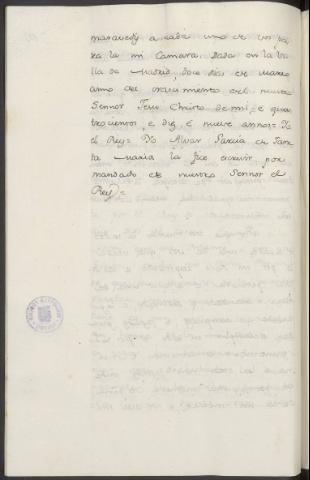 maravedis a cada uno de vos pa
ra la mi Camara. Dada en la Vi
lla de Madrid, doce dias de Marzo
anno del nacimiento del nuestro
Sennor Jesu Christo de mil, e qua
trocientos, e diez e nueve annos= Yo
el Rey= Yo Alvar Garcia de San
ta Maria la fice escrivir por
mandado de nuestro Sennor el
Rey=